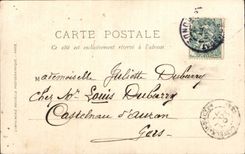 CARTE POSTALE
Ce côté est exclusivement réservé à l'adresse
Mademoiselle Juliette Dubarry
Chez Mr Louis Dubarry
Castelnau d'auzan
Gers